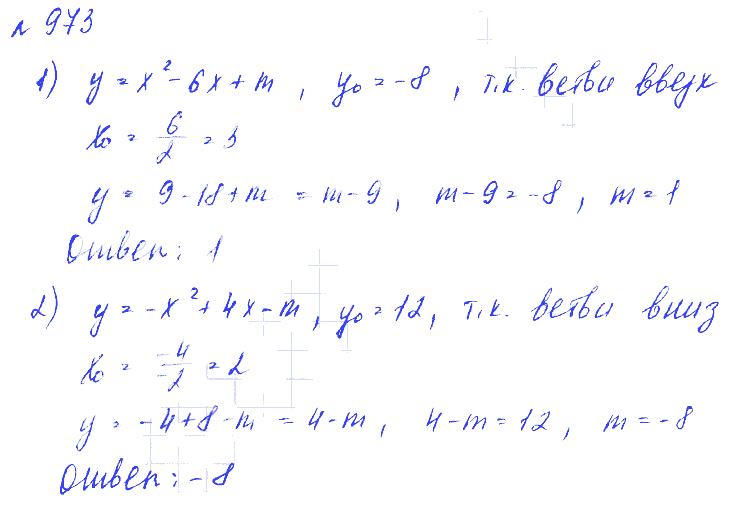 № 973
1) y = x² - 6x + m , y₀ = -8 , т.к. ветви вверх
x₀ = 6/2 = 3
y = 9 - 18 + m = m - 9 , m - 9 = -8 , m = 1
Ответ: 1
2) y = -x² + 4x - m , y₀ = 12 , т.к. ветви вниз
x₀ = -4/-2 = 2
y = -4 + 8 - m = 4 - m , 4 - m = 12 , m = -8
Ответ: -8